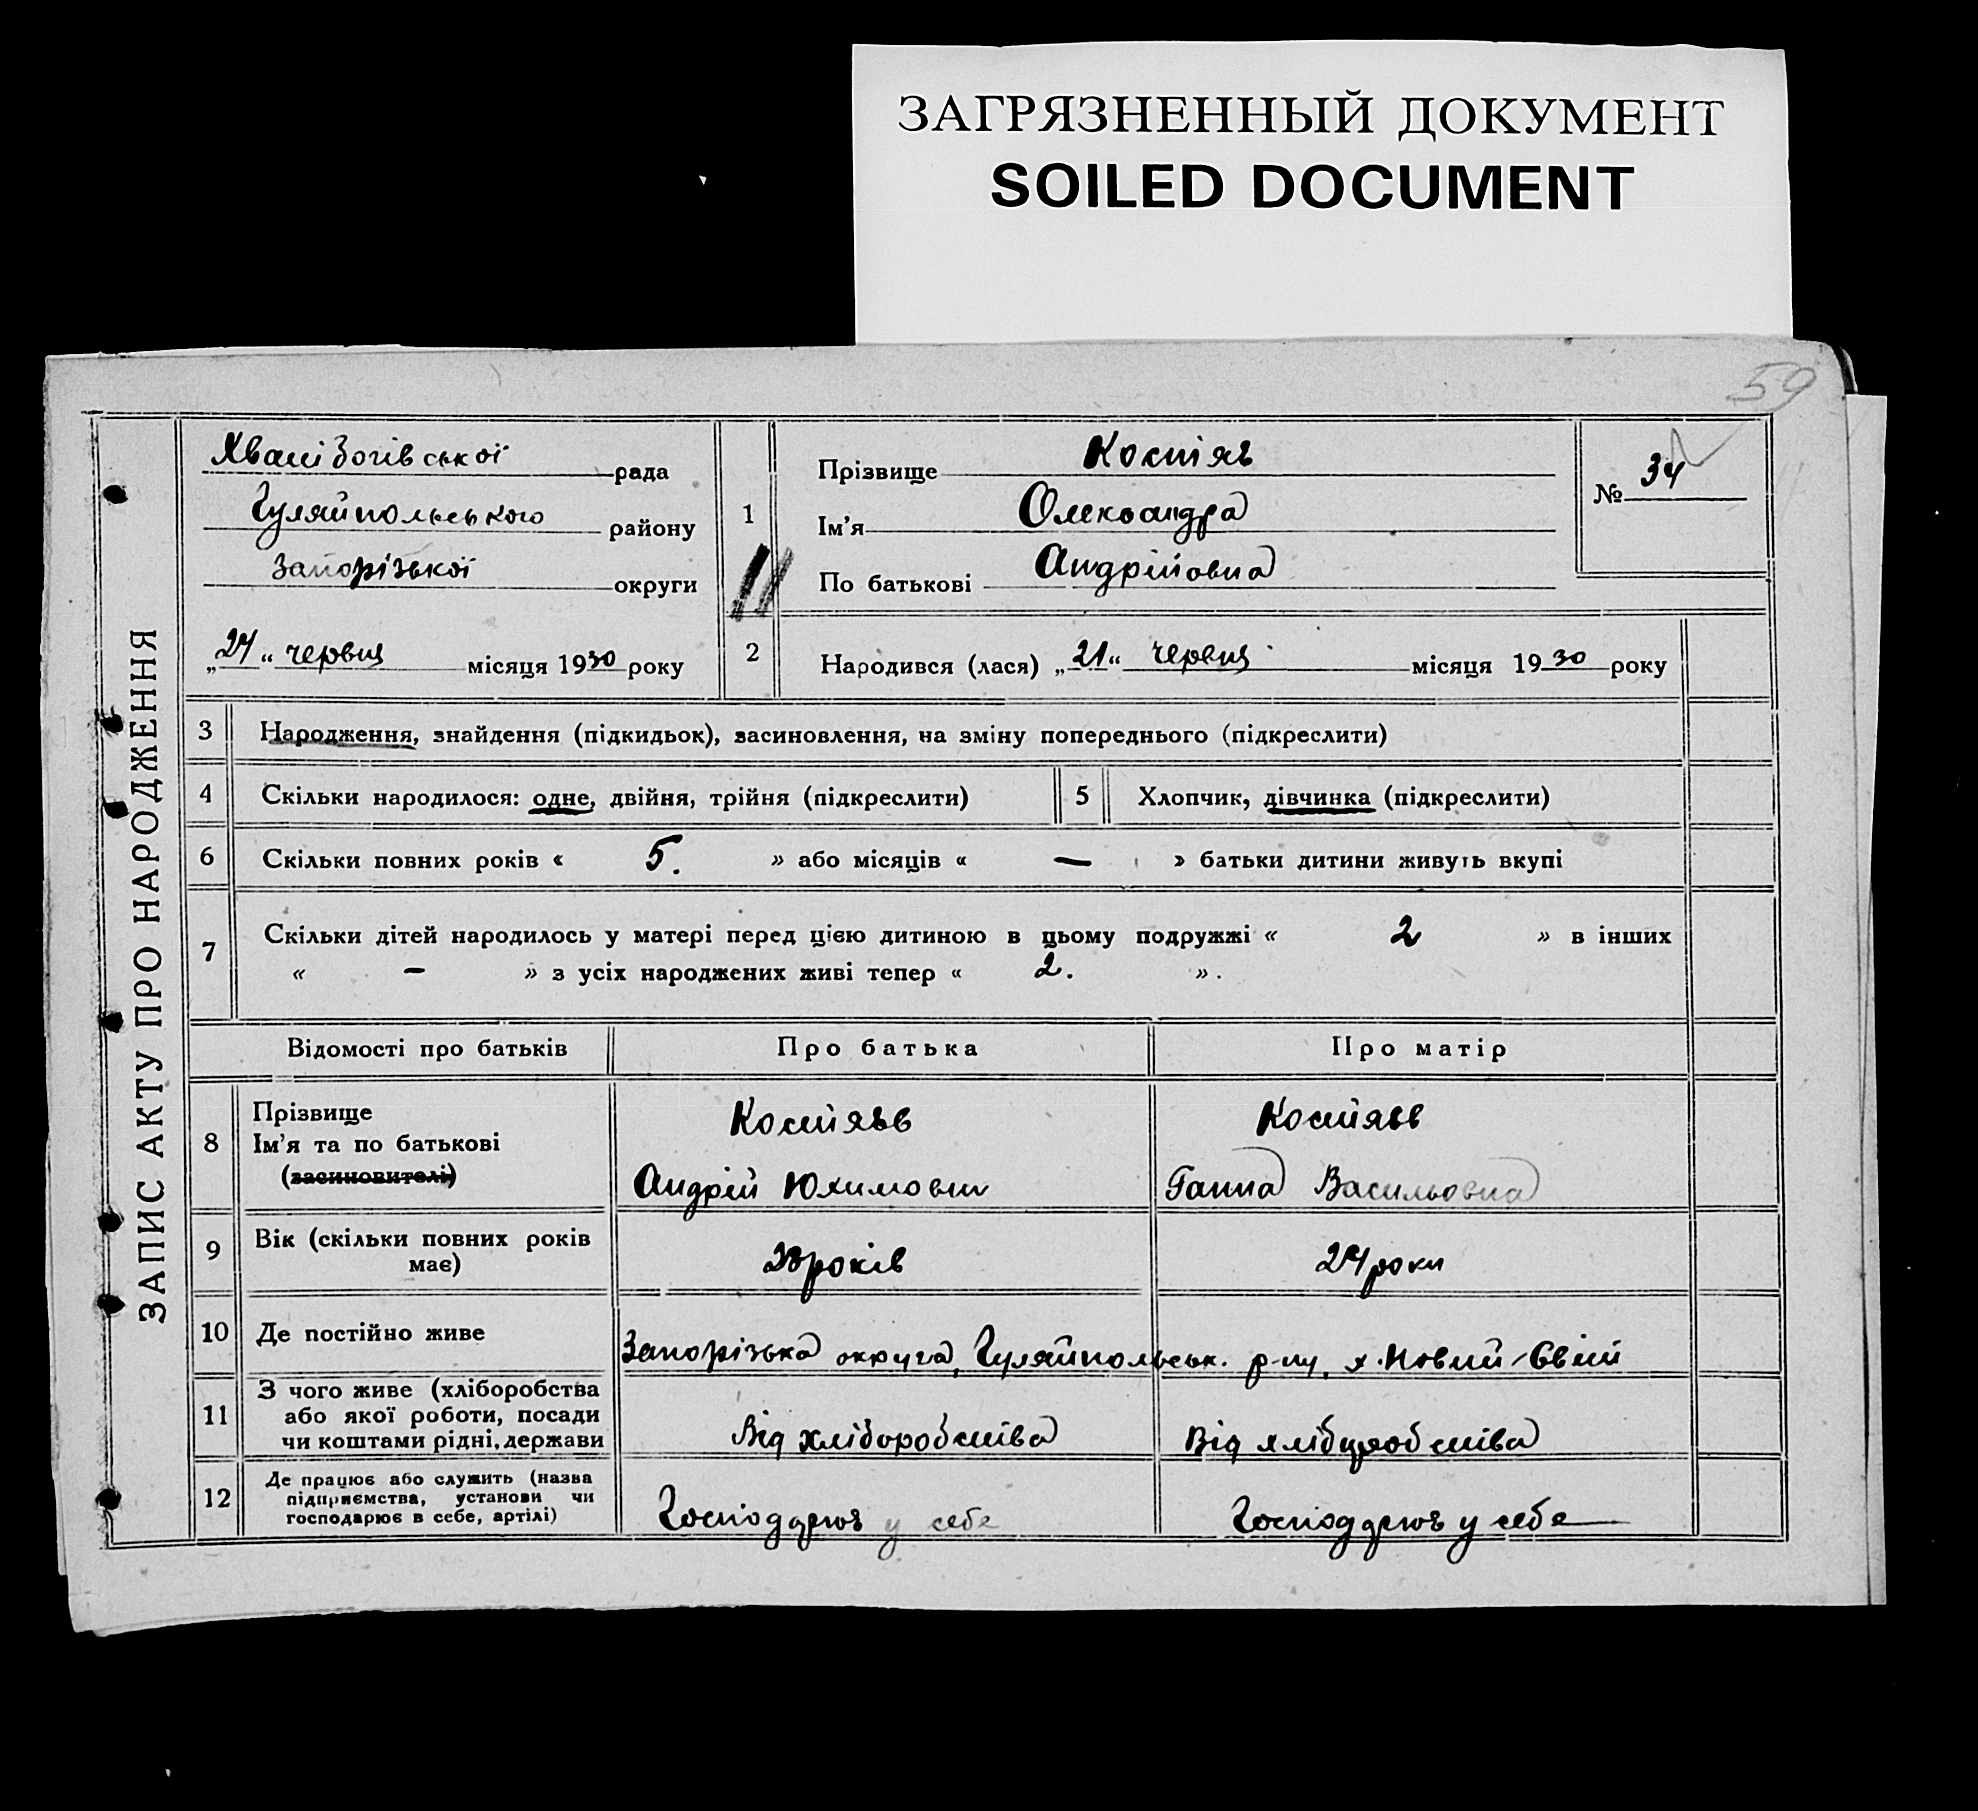 ЗАГРЯЗНЕННЫЙ ДОКУМЕНТ
SOILED DOCUMENT
59
ЗАПИС АКТУ ПРО НАРОДЖЕННЯ
рада
Гуляйпольського району
Запорізької округи
„24“ червця місяця 1930 року
1
Прізвище Костіяв
Ім'я Олександра
По батькові Андрійовна
№ 34
2 Народився (лася) „21“ червця місяця 1930 року
3 Народження, знайдення (підкидьок), засиновлення, на зміну попереднього (підкреслити)
4 Скільки народилося: одне, двійня, трійня (підкреслити) 5 Хлопчик, дівчинка (підкреслити)
6 Скільки повних років « 5. » або місяців « — » батьки дитини живуть вкупі
7 Скільки дітей народилось у матері перед цією дитиною в цьому подружжі « 2 » в інших
« — » з усіх народжених живі тепер « 2. ».
Відомості про батьків Про батька Про матір
8 Прізвище
Ім'я та по батькові
(засиновителі)
Андрій Юхимович Ганна Васильовна
9 Вік (скільки повних років
має)
років 24 роки
10 Де постійно живе Запорізька округа, Гуляйпольськ. р-ну, х. Новий-Світ
11 З чого живе (хліборобства
або якої роботи, посади
чи коштами рідні, держави
Від хліборобства Від хліборобства
12 Де працює або служить (назва
підприємства, установи чи
господарює в себе, артілі)
Господарює у себе Господарює у себе